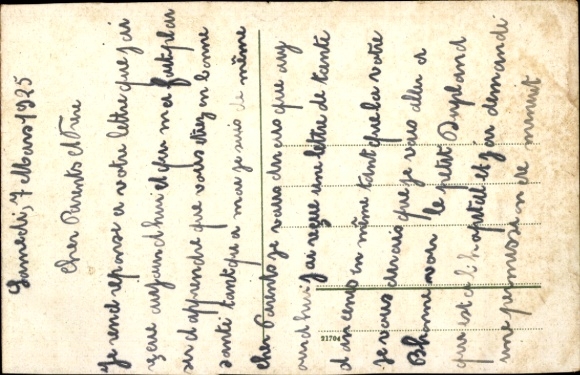 Samedi, 7 Mars 1925
Cher Parents et Frère
Je rend réponse a votre lettre que j'ai
reçue aujourd'hui et qui m'a fait plai
sir d'apprendre que vous étiez en bonne
santé tant qu'a moi je suis de même
Cher Parents je vous dirais que auj
ourd'hui j'ai reçue une lettre de tante
d'an cenis en même tant que la votre
je vous dirais que je vais aler a
voir le petit
que est a l'hopital et j'ai demandé
une permission de minuit
21704